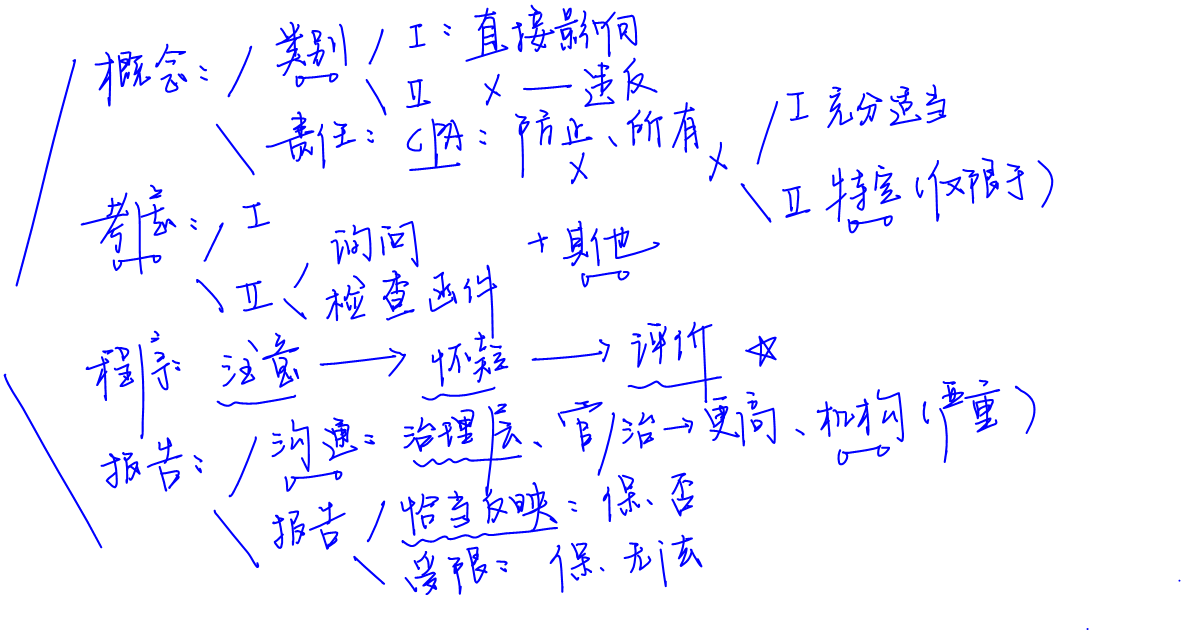 概念： 类别 I：直接影响
II × — 违反
责任：CPA：防止、所有 × I 充分适当
× II 特定（仅限于）
考虑： I
II 询问 + 其他
检查函件
程序： 注意 → 怀疑 → 评价 ☆
报告： 沟通：治理层、官/治→更高、机构（严重）
报告 恰当反映：保、否
受限：保、无法